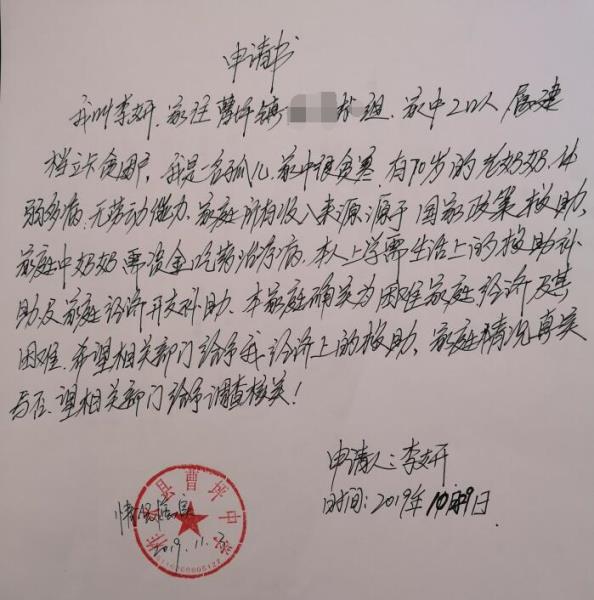 申请书
我叫李妍,家住曹坪镇 组,家中2口人,属建
档立卡贫困户,我是一名孤儿,家中很贫寒,有70岁的老奶奶,体
弱多病,无劳动能力,家庭所有收入来源源于国家政策救助,
家庭中奶奶需资金吃药治疗病,本人上学需生活上的救助补
助及家庭经济开支补助、本家庭确实为困难家庭,经济及其
困难,希望相关部门给予我经济上的救助,家庭情况真实
与否,望相关部门给予调查核实!
申请人:李妍
时间:2019年10月9日.
情况属实
2019.11.
县曹坪中学